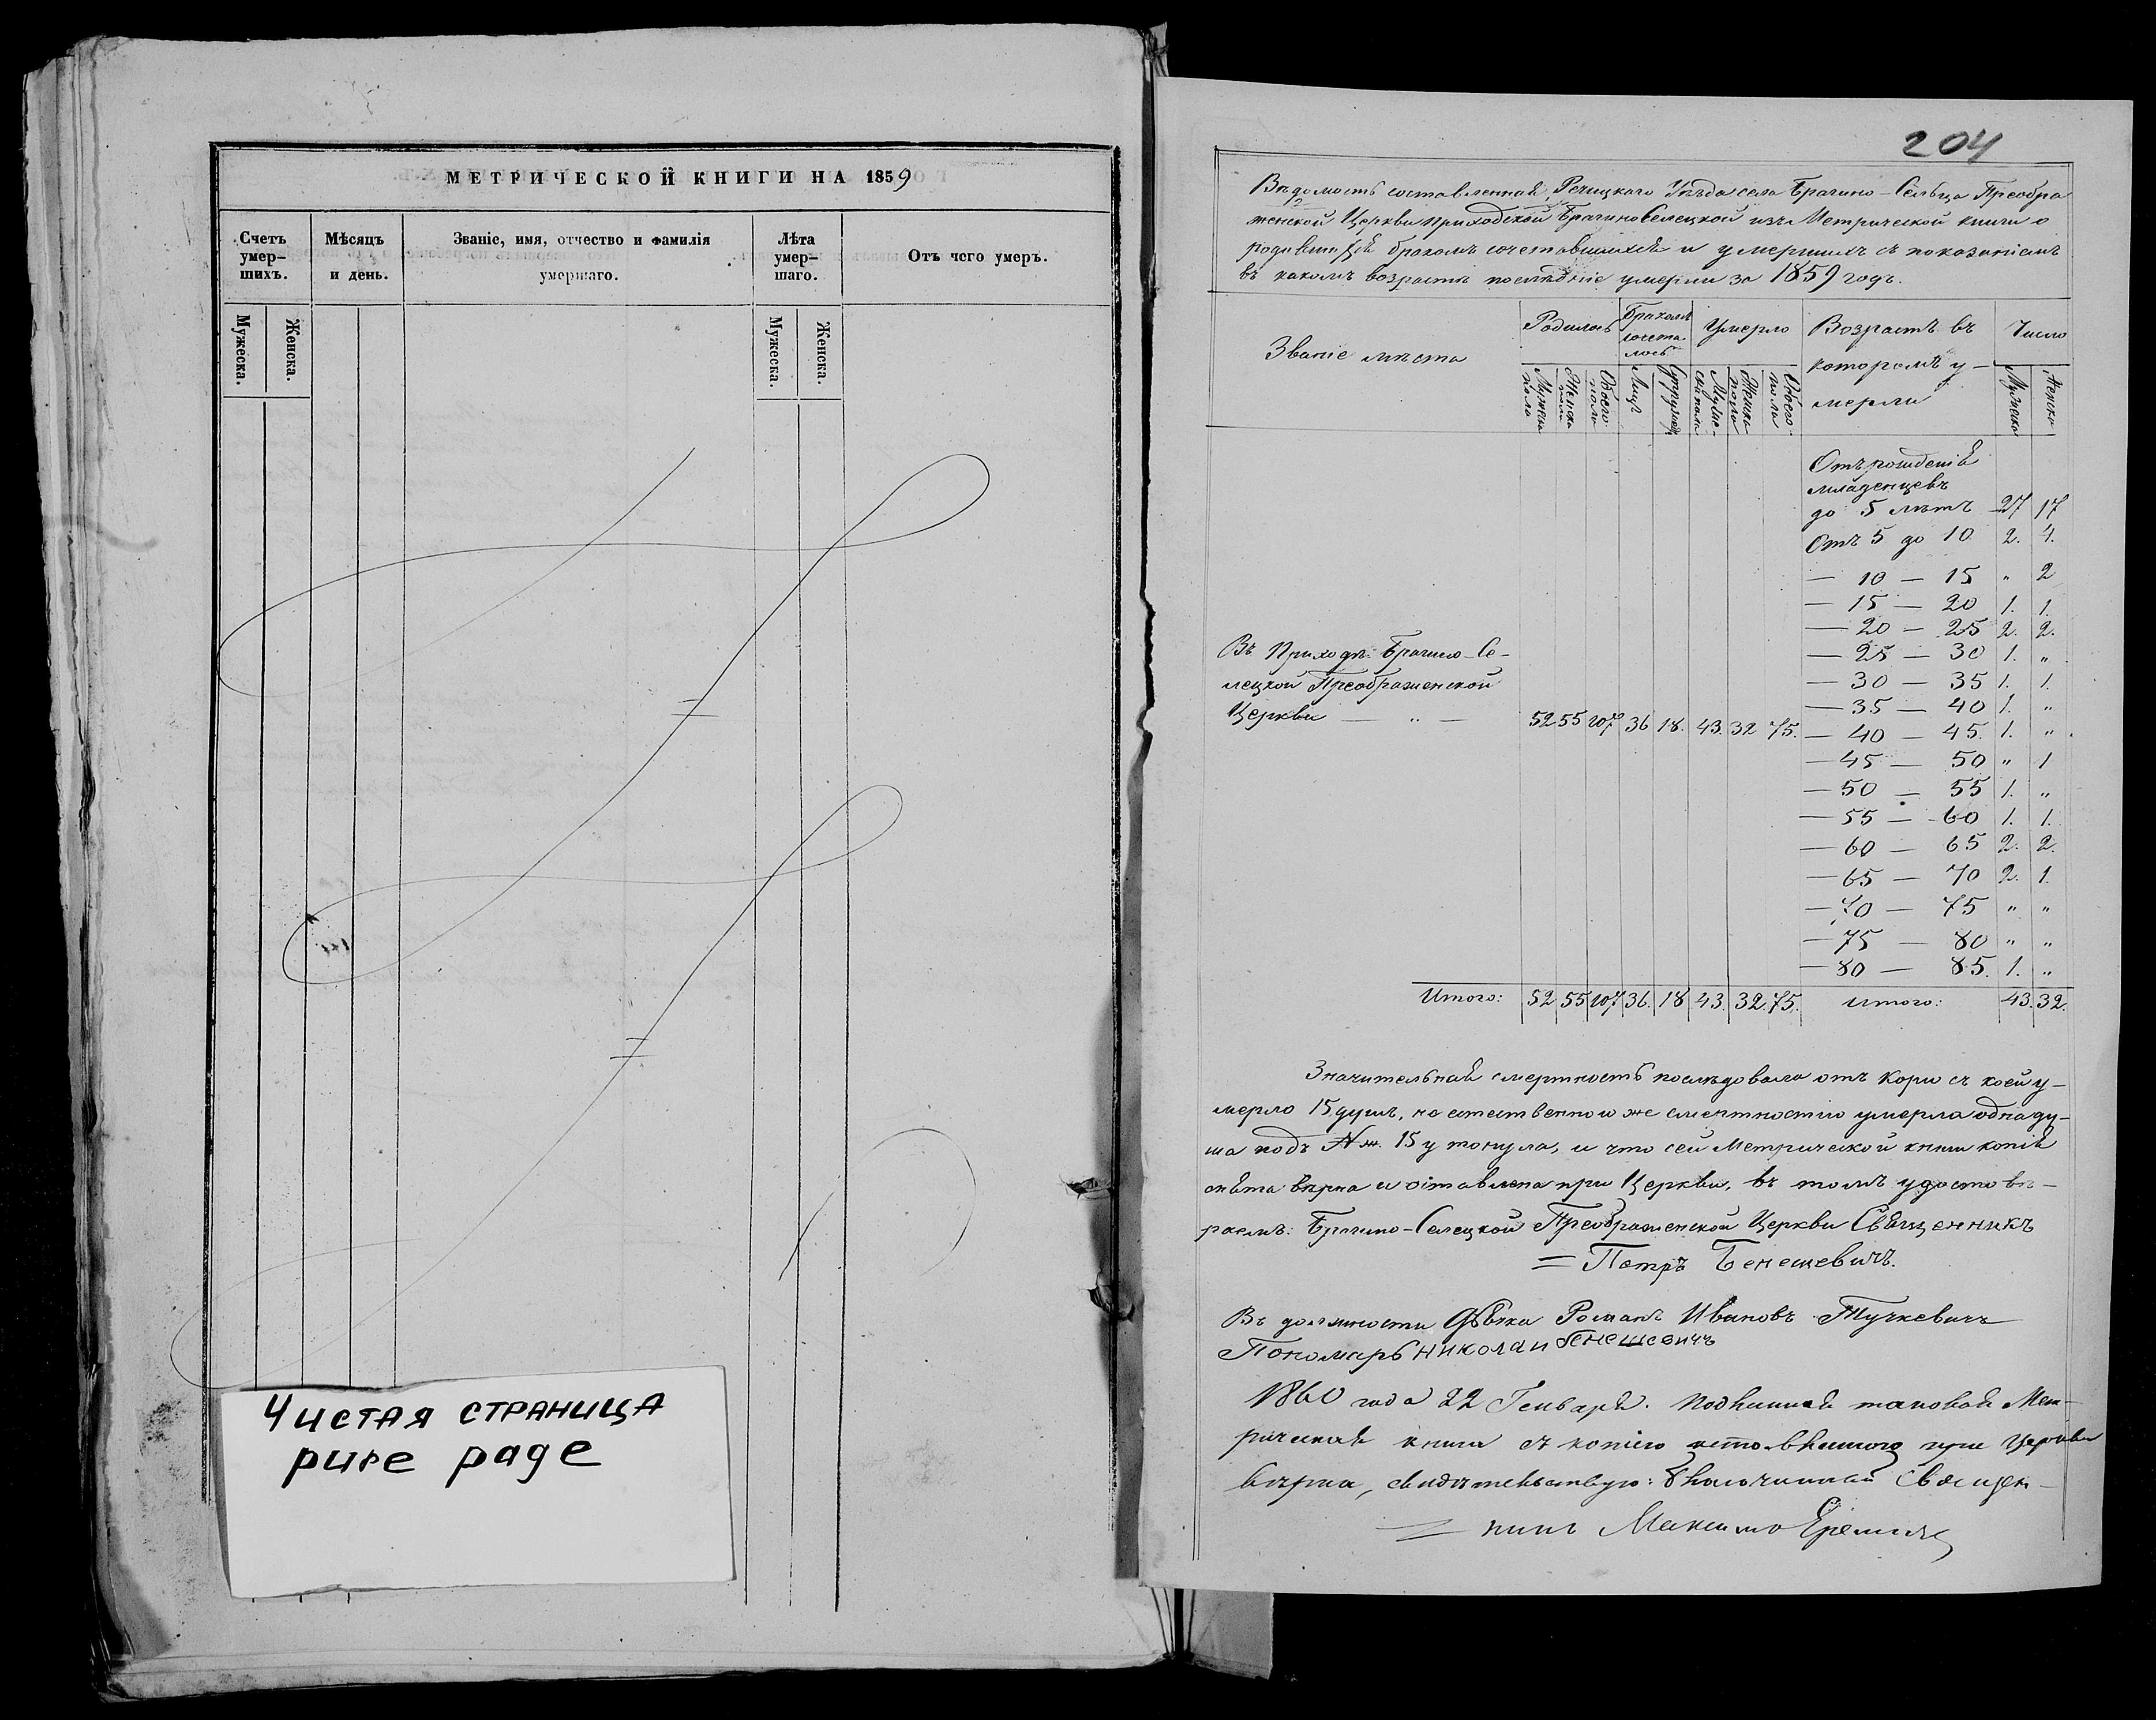 МЕТРИЧЕСКОЙ КНИГИ НА 1859
Счетъ умер-шихъ.
Мѣсяцъ и день.
Званіе, имя, отчество и фамилія умершаго.
Лѣта умер-шаго.
Отъ чего умеръ.
Мужеска.
Женска.
Мужеска.
Женска.
Чистая страница
pure page
204
Вѣдомость составленная, Речицкаго Уѣзда села Брагино-Сельца Преобра
женской Церкви приходской Брагиноселецкой изъ Метрической книги о
родившихся бракомъ сочетавшихся и умершихъ съ показаніемъ
въ какомъ возрастѣ послѣдніе умерли за 1859 годъ.
Званіе мѣста
Родилось
Бракомъ сочета лось
Умерло
Возрастъ въ которомъ у-мерли
Число
Мужеска пола
Женска пола
Обоего пола
Лицъ
Супружеѣ
Муже-ска пола
Женска пола
Обоего пола
Мужеска
Женска
Отъ рожденія
младенцевъ
до 5 лѣтъ 27 17
Отъ 5 до 10 2. 4.
— 10 — 15 „ 2
— 15 — 20 1. 1.
— 20 — 25 2. 2.
— 25 — 30 1. „
— 30 — 35 1. 1.
— 35 — 40 1. „
— 40 — 45. 1. „
— 45 — 50 „ 1
— 50 — 55 1. „
— 55 — 60 1. 1.
— 60 — 65 2. 2.
— 65 — 70 2. 1.
— 70 — 75 „ „
— 75 — 80 „ „
— 80 — 85. 1. „
Въ Приходѣ Брагино-Се-
лецкой Преображенской
Церкви — „ — 52 55 107 36 18. 43. 32 75.
Итого: 52 55 107 36. 18 43. 32. 75. Итого: 43. 32.
Значительная смертность послѣдовала отъ кори съ коей у-
мерло 15 душъ, не естественною же смертностію умерла одна ду-
ша подъ № ж. 15 утонула, и что сей Метрической книги копія
снята вѣрна и оставлена при Церкви, въ томъ удостовѣ-
ряемъ: Брагино-Селецкой Преображенской Церкви Священникъ
= Петръ Бенешевичъ.
Въ должности Дьяка Романъ Ивановъ Тучкевичъ
Пономарь Николай Бенешевичъ
1860 года 22 Генваря. Подлинная таковая Мет-
рическая книга съ копіею оставленною при Церкви
вѣрна, свидѣтельствую: Благочинный Священ-
= никъ Максимъ